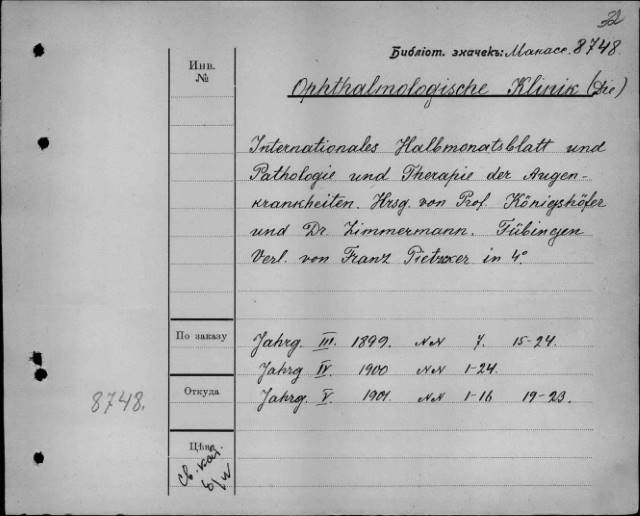 32
Библіот. значекъ: Манасс. 8748.
Инв.
№
Ophthalmologische Klinik (Die)
Internationales Halbmonatsblatt und
Pathologie und Therapie der Augen-
krankheiten. Hrsg. von Prof. Königshöfer
und Dr. Zimmermann. Tübingen
Verl. von Franz Pietzker in 4°.
По заказу
Jahrg. III. 1899. NN 7. 15-24.
Jahrg. IV. 1900 NN 1-24.
Откуда
8748.
Jahrg. V. 1901. NN 1-16 19-23.
Цѣна
св. кат.